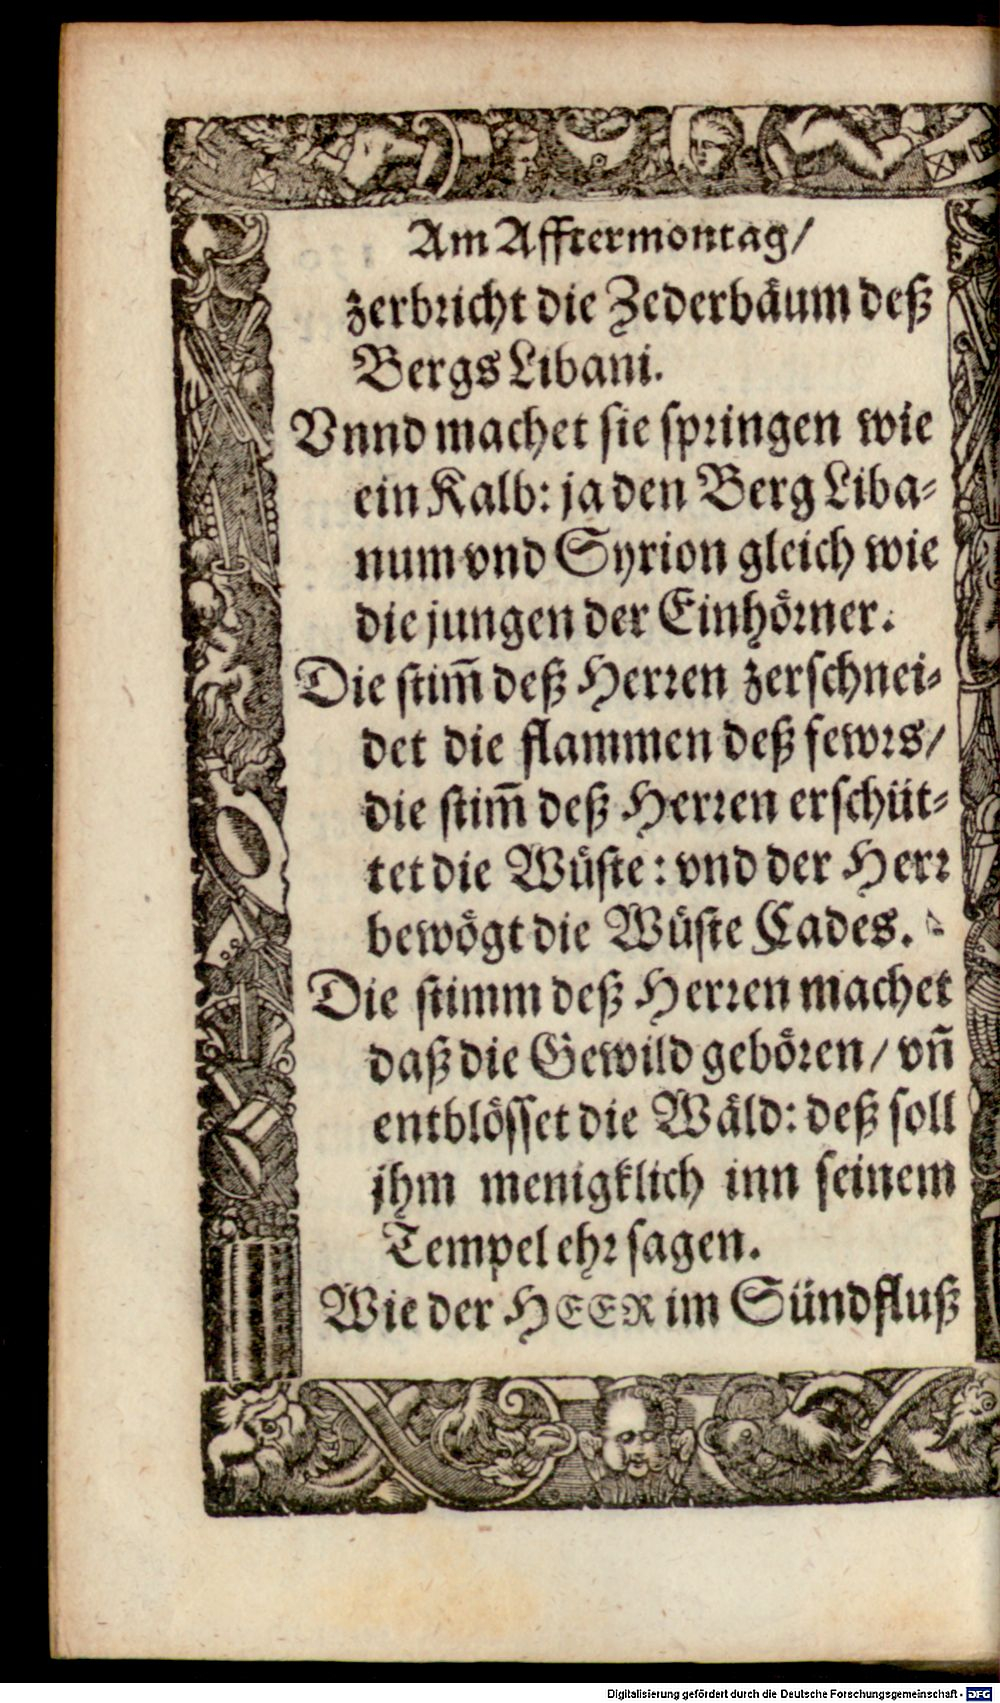 Am Afftermontag/
zerbricht die Zederbäum deß
Bergs Libani.
Vnnd machet sie springen wie
ein Kalb: ja den Berg Liba-
num vnd Syrion gleich wie
die jungen der Einhörner.
Die stim̄ deß Herren zerschnei-
det die flammen deß fewrs/
die stim̄ deß Herren erschüt-
tet die Wüste: vnd der Herr
bewögt die Wüste Cades.
Die stimm deß Herren machet
daß die Gewild gebören/ vn̄
entblösset die Wäld: deß soll
jhm menigklich inn seinem
Tempel ehr sagen.
Wie der HEER im Sündfluß
Digitalisierung gefördert durch die Deutsche Forschungsgemeinschaft - DFG